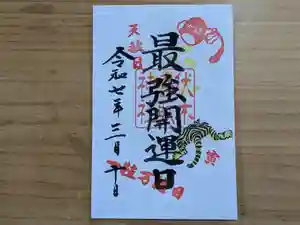 最強開運日
天赦日
令和七年三月十日
寅
一粒万倍日